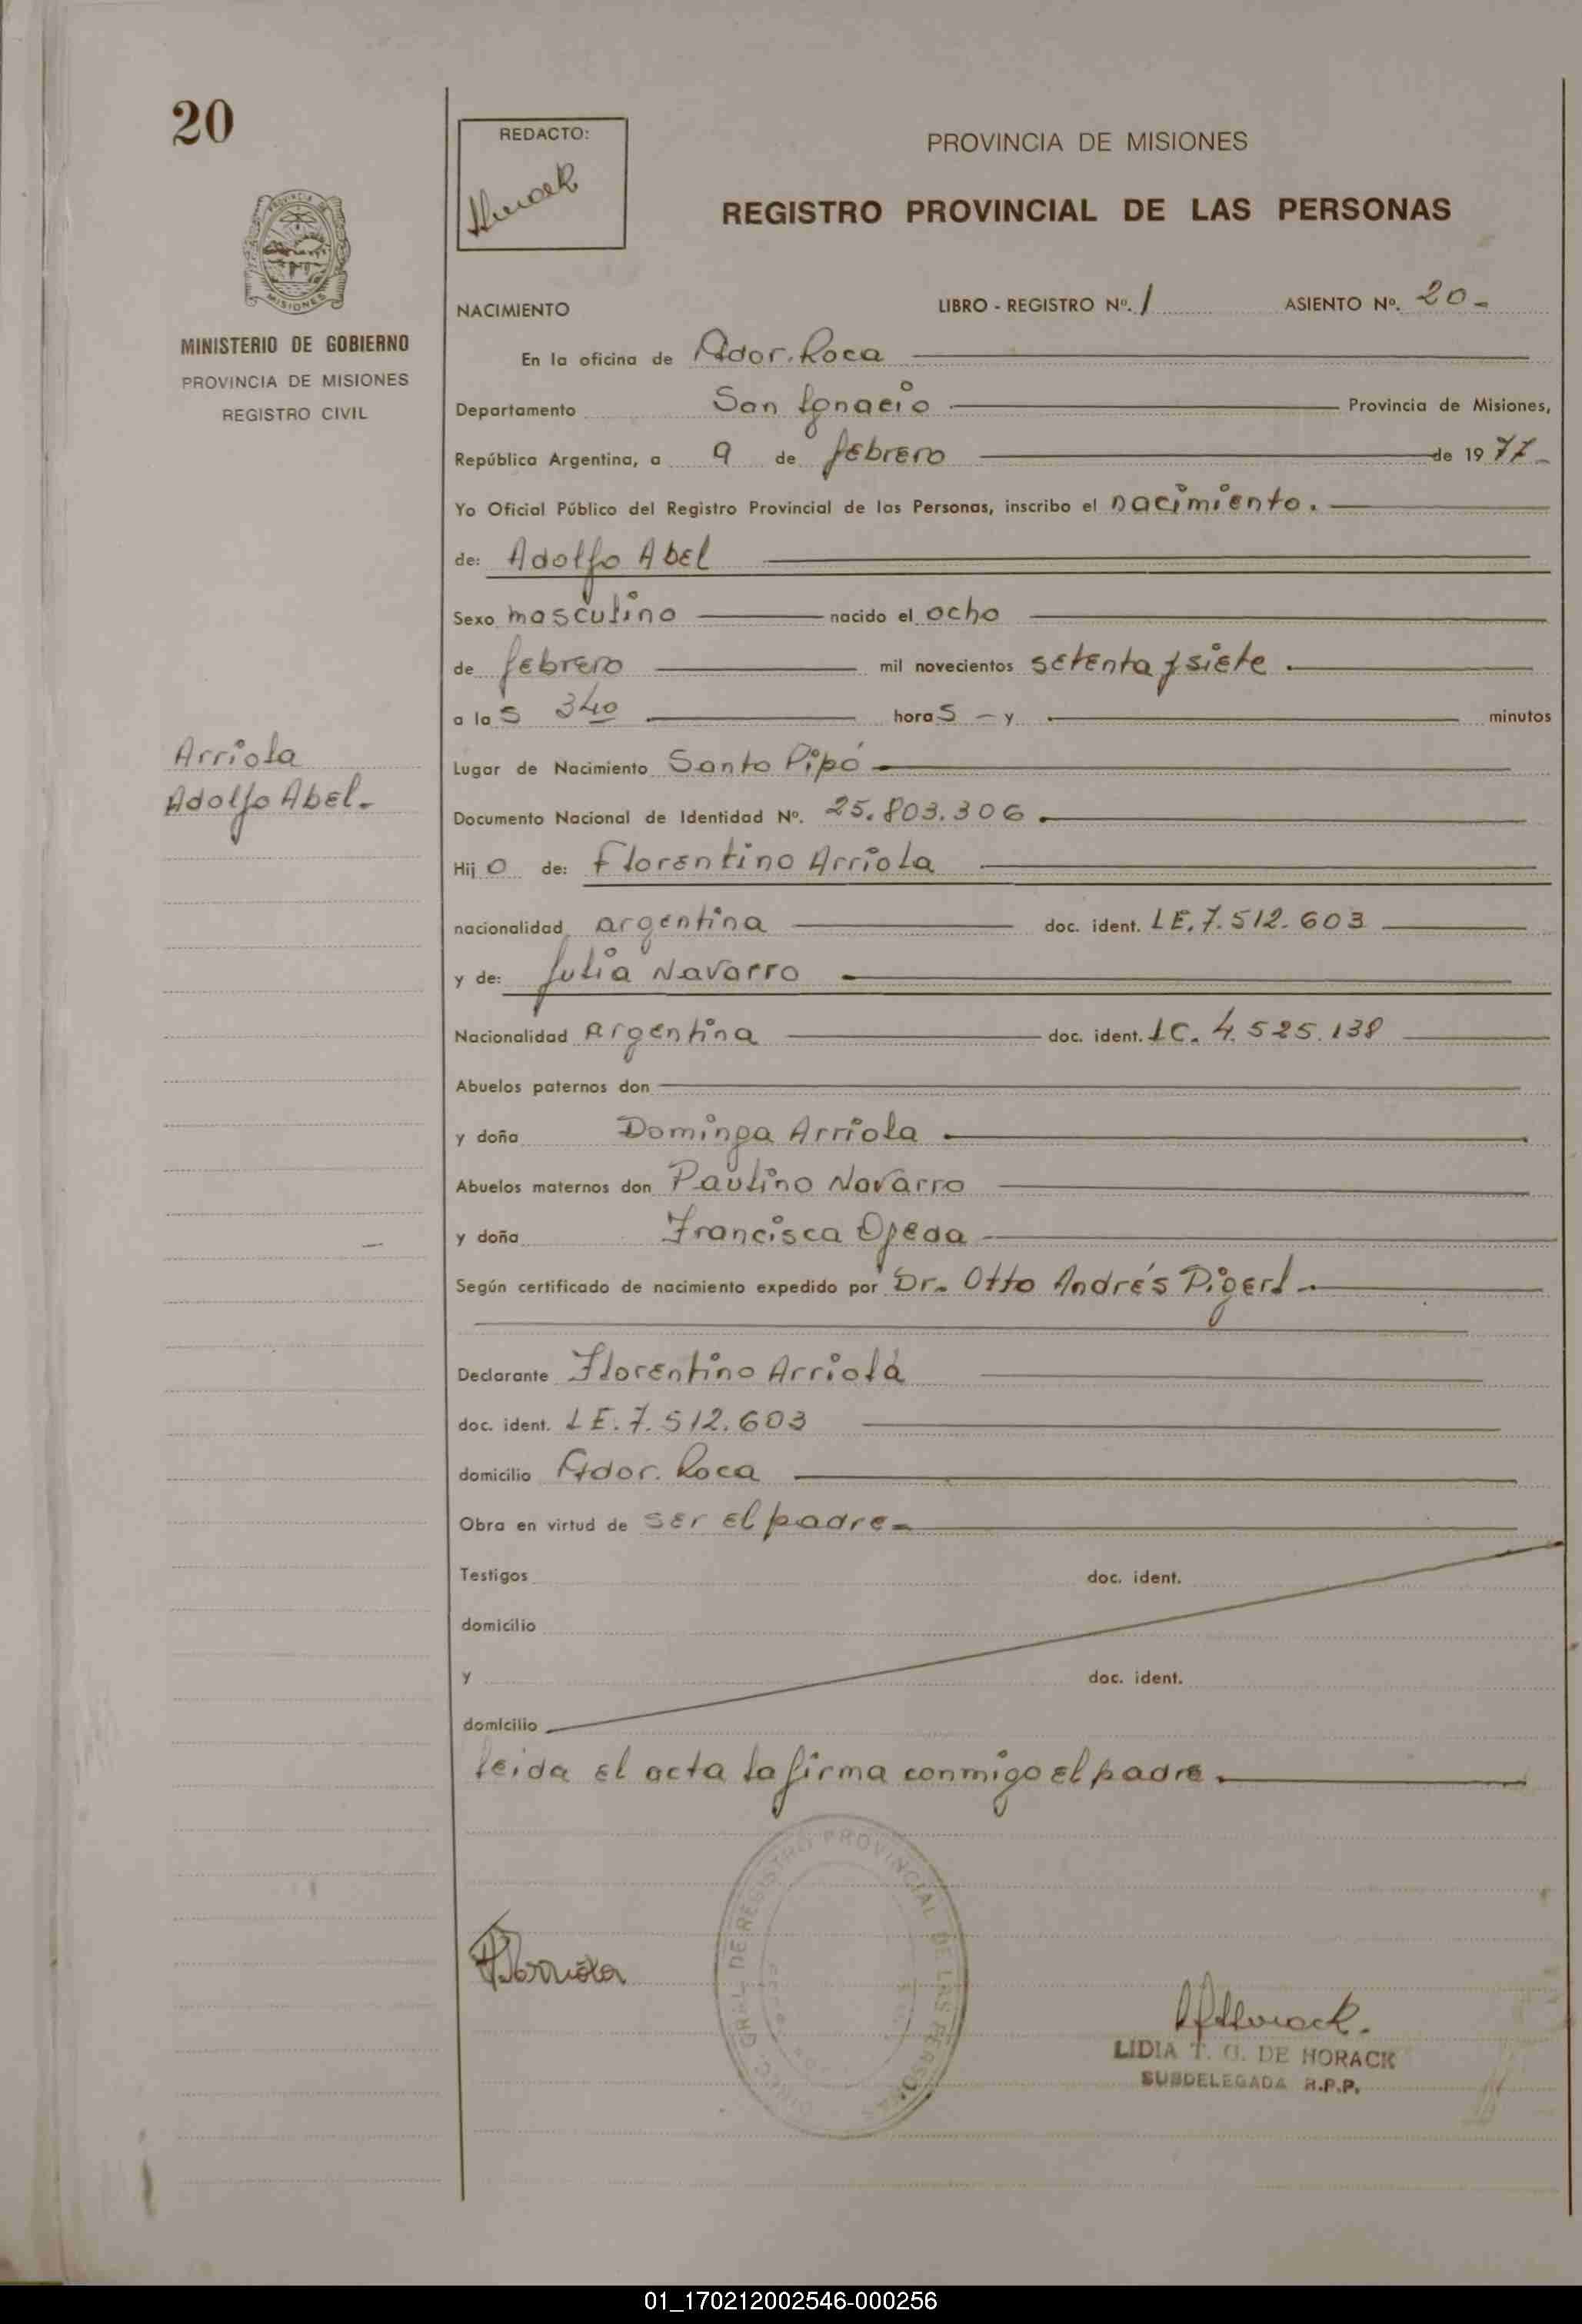 20
REDACTO:
Horack
PROVINCIA DE MISIONES
REGISTRO PROVINCIAL DE LAS PERSONAS
MISIONES
MINISTERIO DE GOBIERNO
PROVINCIA DE MISIONES
REGISTRO CIVIL
NACIMIENTO LIBRO - REGISTRO Nº. 1 ASIENTO Nº. 20-
En la oficina de Gdor. Roca
Departamento San Ignacio Provincia de Misiones,
República Argentina, a 9 de febrero de 1977-
Yo Oficial Público del Registro Provincial de las Personas, inscribo el nacimiento.
de: Adolfo Abel
Sexo masculino nacido el ocho
de febrero mil novecientos setenta y siete.
a las 3 40 horas - y minutos
Arriola
Adolfo Abel-
Lugar de Nacimiento Santo Pipó
Documento Nacional de Identidad Nº. 25.803.306.
Hijo de: Florentino Arriola
nacionalidad argentina doc. ident. LE. 7.512.603
y de: Julia Navarro
Nacionalidad Argentina doc. ident. LC. 4.525.138
Abuelos paternos don
y doña Dominga Arriola
Abuelos maternos don Paulino Navarro
y doña Francisca Ojeda
Según certificado de nacimiento expedido por Dr. Otto Andrés
Declarante Florentino Arriola
doc. ident. LE. 7.512.603
domicilio Gdor. Roca
Obra en virtud de ser el padre-
Testigos doc. ident.
domicilio
y doc. ident.
domicilio
leida el acta la firma conmigo el padre.
DIREC. GRAL. DE REGISTRO PROVINCIAL DE LAS PERSONAS
LIDIA T. G. DE HORACK
SUBDELEGADA R.P.P.
01_170212002546-000256